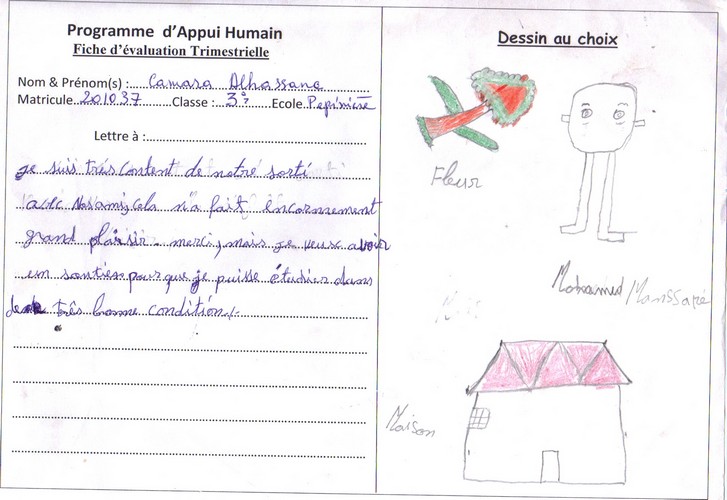 Programme d'Appui Humain
Fiche d'évaluation Trimestrielle
Nom & Prénom(s) : Camara Alhassane
Matricule 201037 Classe : 3è Ecole Pepinière
Lettre à :
je suis très content de notre sorti
avec Nos ami, cela n'a fait encormement
grand plaisir. merci, mais je veux avoir
un soutien pour que je puisse étudier dans
de très bonne condition./.
Dessin au choix
Fleur
Mohamed Manssaré
Maison